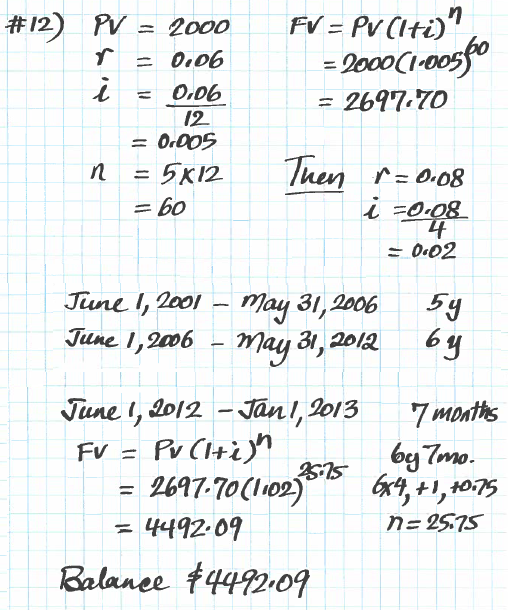 #12) PV = 2000
r = 0.06
i = 0.06
12
= 0.005
n = 5x12
= 60
FV = PV(1+i)^n
= 2000(1.005)^60
= 2697.70
Then r = 0.08
i = 0.08
4
= 0.02
June 1, 2001 - May 31, 2006 5y
June 1, 2006 - May 31, 2012 6y
June 1, 2012 - Jan 1, 2013 7 months
FV = PV(1+i)^n
= 2697.70(1.02)^25.75
= 4492.09
6y 7mo.
6x4, +1, +0.75
n = 25.75
Balance $4492.09